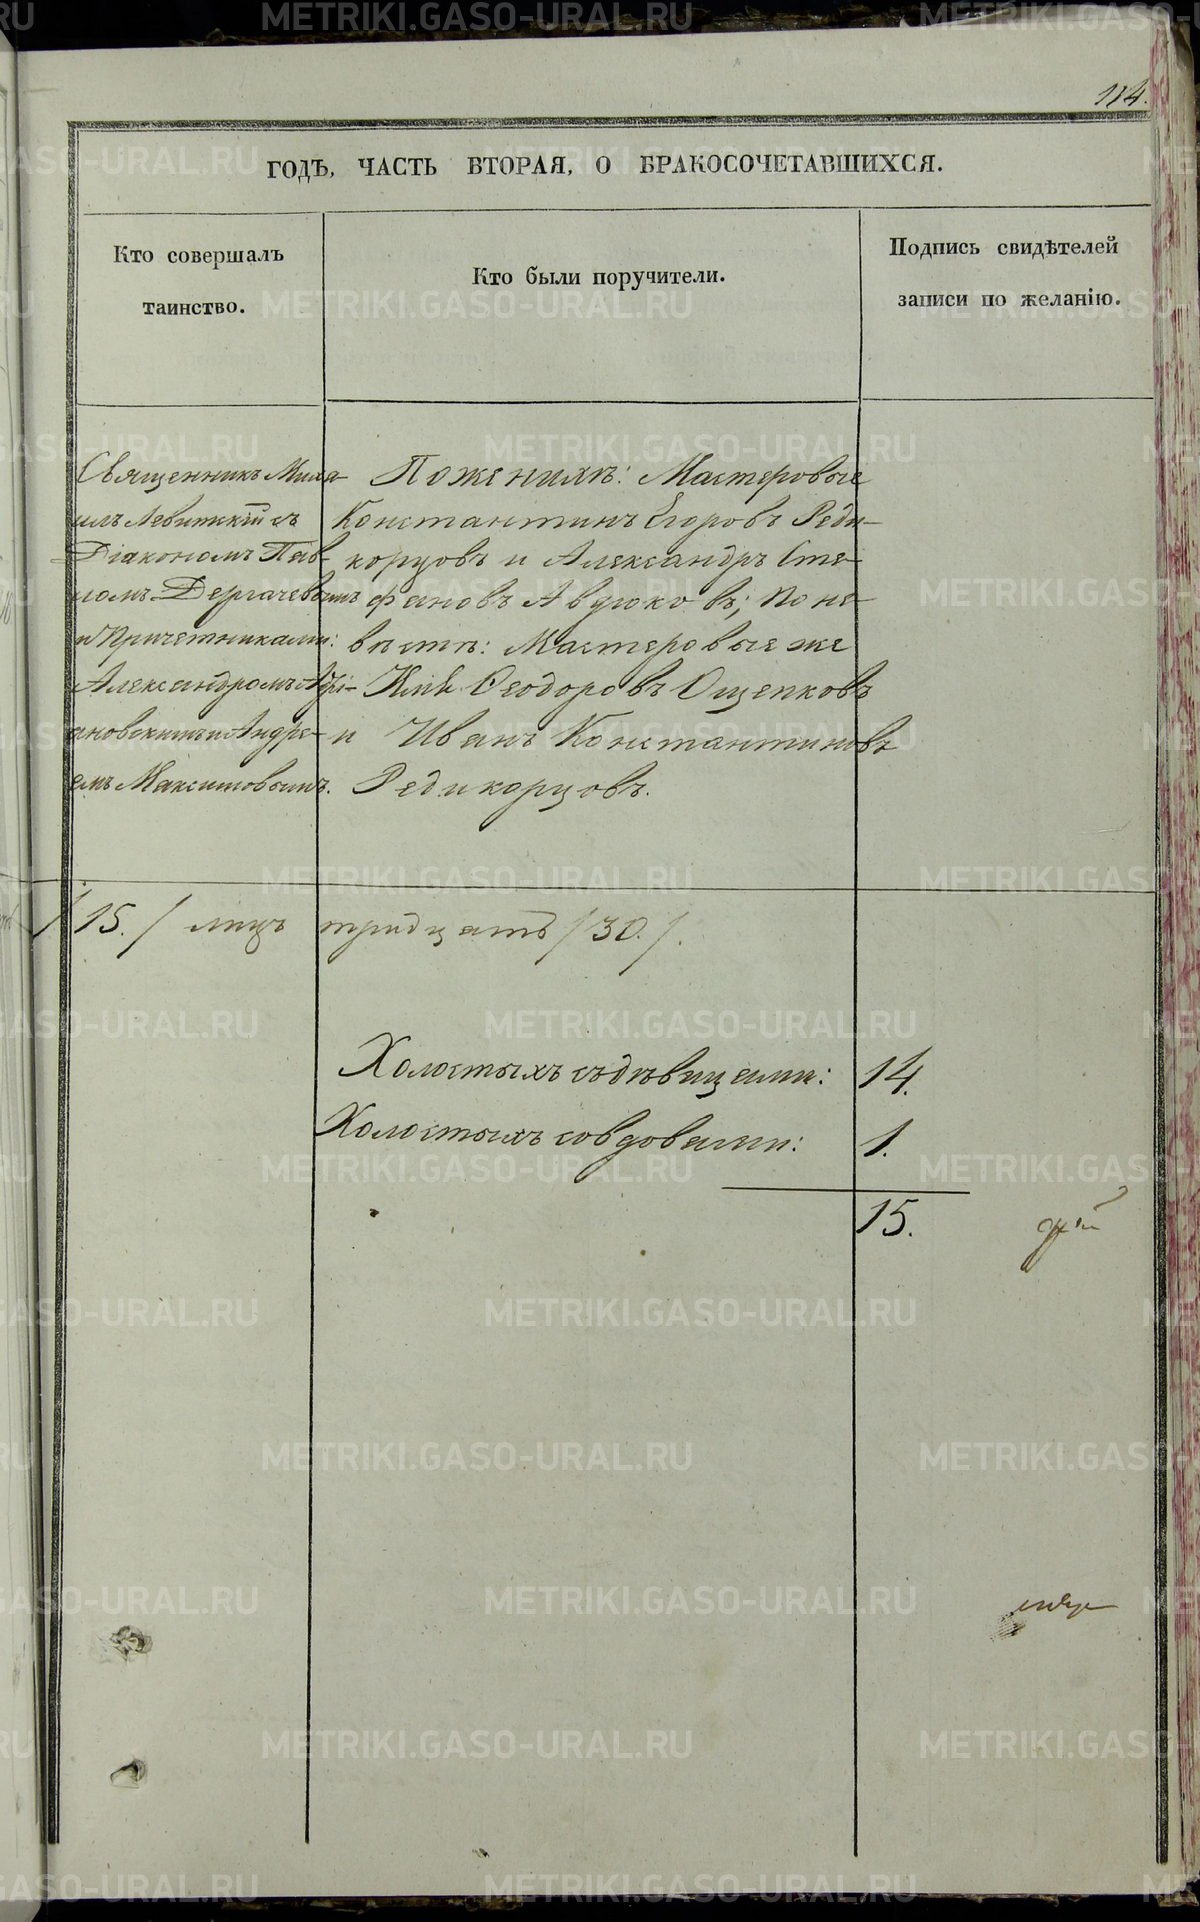 114.
ГОДЪ, ЧАСТЬ ВТОРАЯ, О БРАКОСОЧЕТАВШИХСЯ.
Кто совершалъ
таинство.
Кто были поручители.
Подпись свидѣтелей
записи по желанію.
Священникъ Миха-
илъ Левитскій съ
Діакономъ Пав-
ломъ Дергачевымъ
и Причетниками:
Александромъ Адрі-
ановскимъ и Андре-
емъ Максимовымъ.
По женихѣ: Мастеровые
Константинъ Егоровъ Реди-
корцовъ и Александръ Сте-
фановъ Авдюковъ; по не-
вѣстѣ: Мастеровые же
Ѳеодоровъ Ощепковъ
и Иванъ Константиновъ
Редикорцовъ.
/15./ лицъ тридцать /30./.
Холостыхъ съ дѣвицами: 14.
Холостыхъ со вдовами: 1.
15.
METRIKI.GASO-URAL.RU